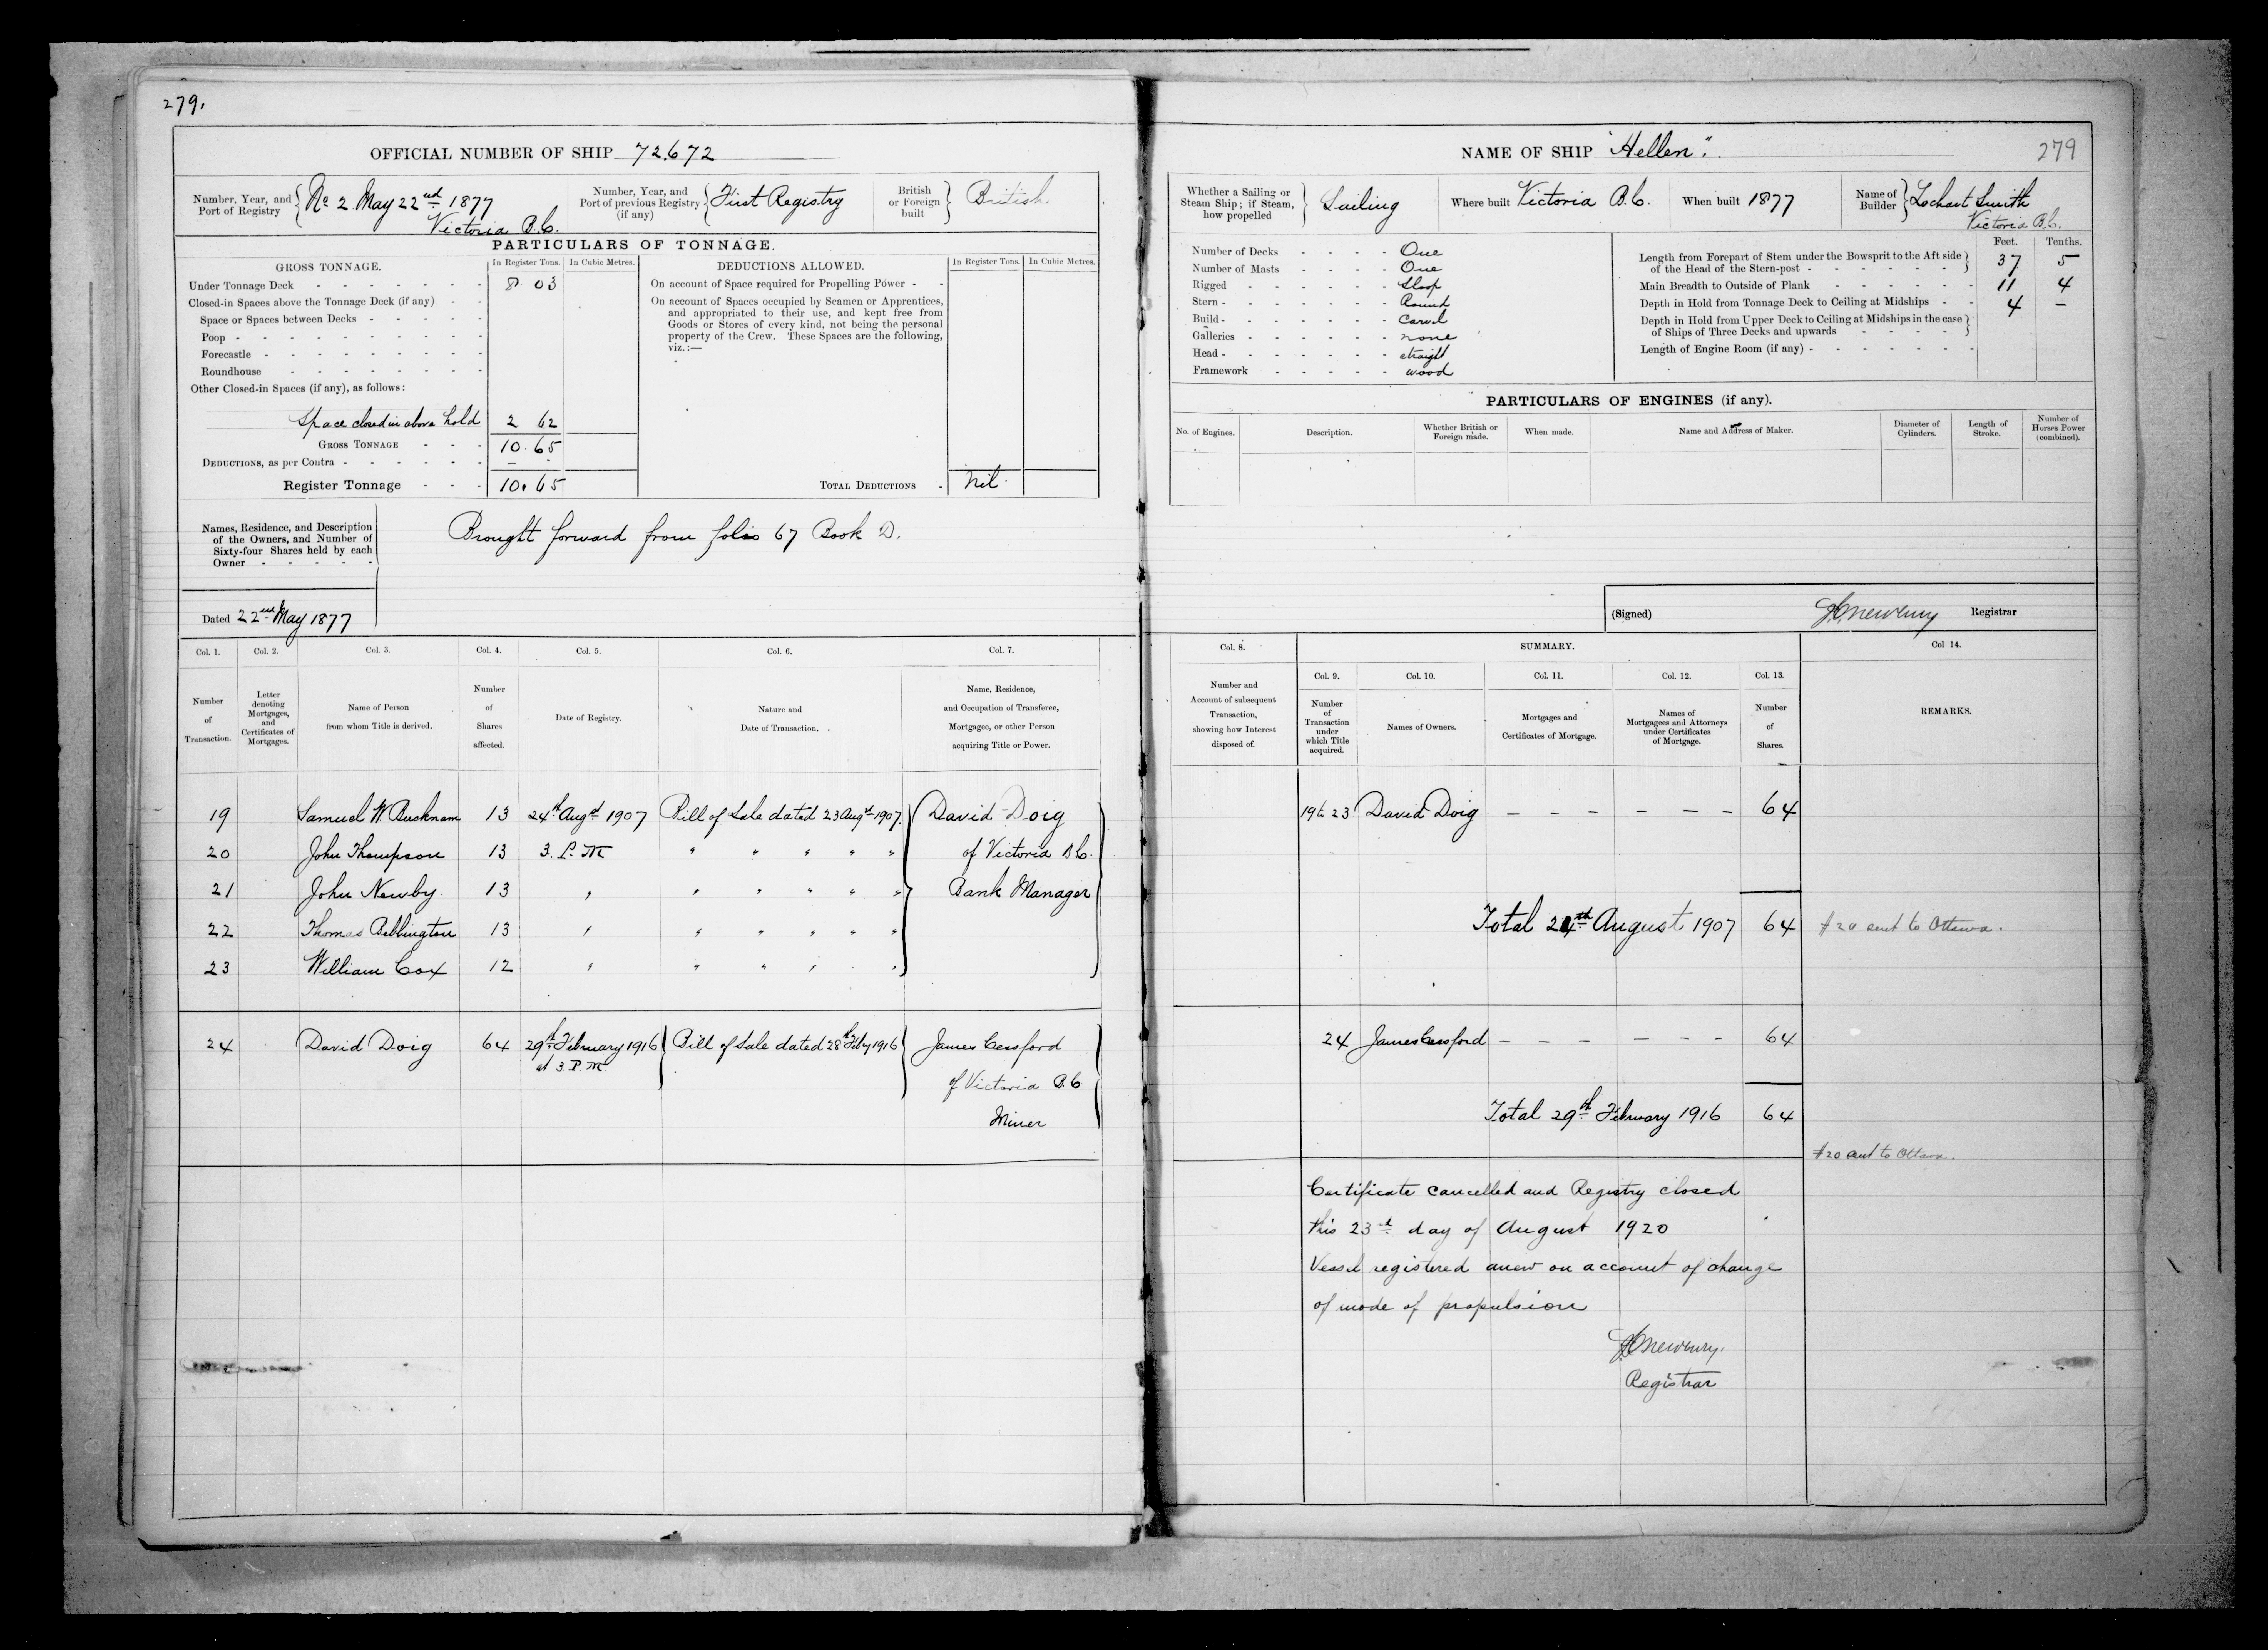 279.
OFFICIAL NUMBER OF SHIP 72,672
Number, Year, and Port of Registry { No 2 May 22nd 1877
Victoria B.C.
Number, Year, and Port of previous Registry (if any) { First Registry
British or Foreign built } British
PARTICULARS OF TONNAGE.
GROSS TONNAGE. In Register Tons. In Cubic Metres.
Under Tonnage Deck - 8 03
Closed-in Spaces above the Tonnage Deck (if any) -
Space or Spaces between Decks -
Poop -
Forecastle -
Roundhouse -
Other Closed-in Spaces (if any), as follows:
Space closed in above hold 2 62
GROSS TONNAGE - 10.65
DEDUCTIONS, as per Contra - –
Register Tonnage - 10.65
DEDUCTIONS ALLOWED. In Register Tons. In Cubic Metres.
On account of Space required for Propelling Power -
On account of Spaces occupied by Seamen or Apprentices,
and appropriated to their use, and kept free from
Goods or Stores of every kind, not being the personal
property of the Crew. These Spaces are the following,
viz.:—
TOTAL DEDUCTIONS - Nil
Names, Residence, and Description
of the Owners, and Number of
Sixty-four Shares held by each
Owner -
Brought forward from folio 67 Book D.
Dated 22nd May 1877
Col. 1. Col. 2. Col. 3. Col. 4. Col. 5. Col. 6. Col. 7.
Number of Transaction.
Letter denoting Mortgages, and Certificates of Mortgages.
Name of Person from whom Title is derived.
Number of Shares affected.
Date of Registry.
Nature and Date of Transaction.
Name, Residence, and Occupation of Transferee, Mortgagee, or other Person acquiring Title or Power.
19 Samuel W. Bucknam 13 24th Augst 1907 Bill of Sale dated 23 Augst 1907 David Doig
20 John Thompson 13 3. P.M " " " " " of Victoria B.C.
21 John Newby 13 " " " " " " Bank Manager
22 Thomas Bebbington 13 " " " " " "
23 William Cox 12 " " " " "
24 David Doig 64 29th February 1916 Bill of Sale dated 28th Feby 1916 James Cessford
at 3 P.M. of Victoria B.C
Miner
NAME OF SHIP "Hellen".
279
Whether a Sailing or Steam Ship; if Steam, how propelled } Sailing
Where built Victoria B.C.
When built 1877
Name of Builder } Lochart Smith
Victoria B.C.
Number of Decks - One
Number of Masts - One
Rigged - Sloop
Stern - Round
Build - Carvel
Galleries - none
Head - straight
Framework - wood
Feet. Tenths.
Length from Forepart of Stem under the Bowsprit to the Aft side
of the Head of the Stern-post - 37 5
Main Breadth to Outside of Plank - 11 4
Depth in Hold from Tonnage Deck to Ceiling at Midships - 4 –
Depth in Hold from Upper Deck to Ceiling at Midships in the case
of Ships of Three Decks and upwards -
Length of Engine Room (if any) -
PARTICULARS OF ENGINES (if any).
No. of Engines. Description. Whether British or Foreign made. When made. Name and Address of Maker. Diameter of Cylinders. Length of Stroke. Number of Horses Power (combined).
(Signed) Registrar
Col. 8. SUMMARY. Col 14.
Col. 9. Col. 10. Col. 11. Col. 12. Col. 13.
Number and Account of subsequent Transaction, showing how Interest disposed of.
Number of Transaction under which Title acquired.
Names of Owners.
Mortgages and Certificates of Mortgage.
Names of Mortgagees and Attorneys under Certificates of Mortgage.
Number of Shares.
REMARKS.
19 to 23 David Doig – – – – – – 64
Total 24th August 1907 64 #20 sent to Ottawa.
24 James Cessford – – – – – – 64
Total 29th February 1916 64
#20 sent to Ottawa.
Certificate cancelled and Registry closed
this 23rd day of August 1920
Vessel registered anew on account of change
of mode of propulsion
Registrar